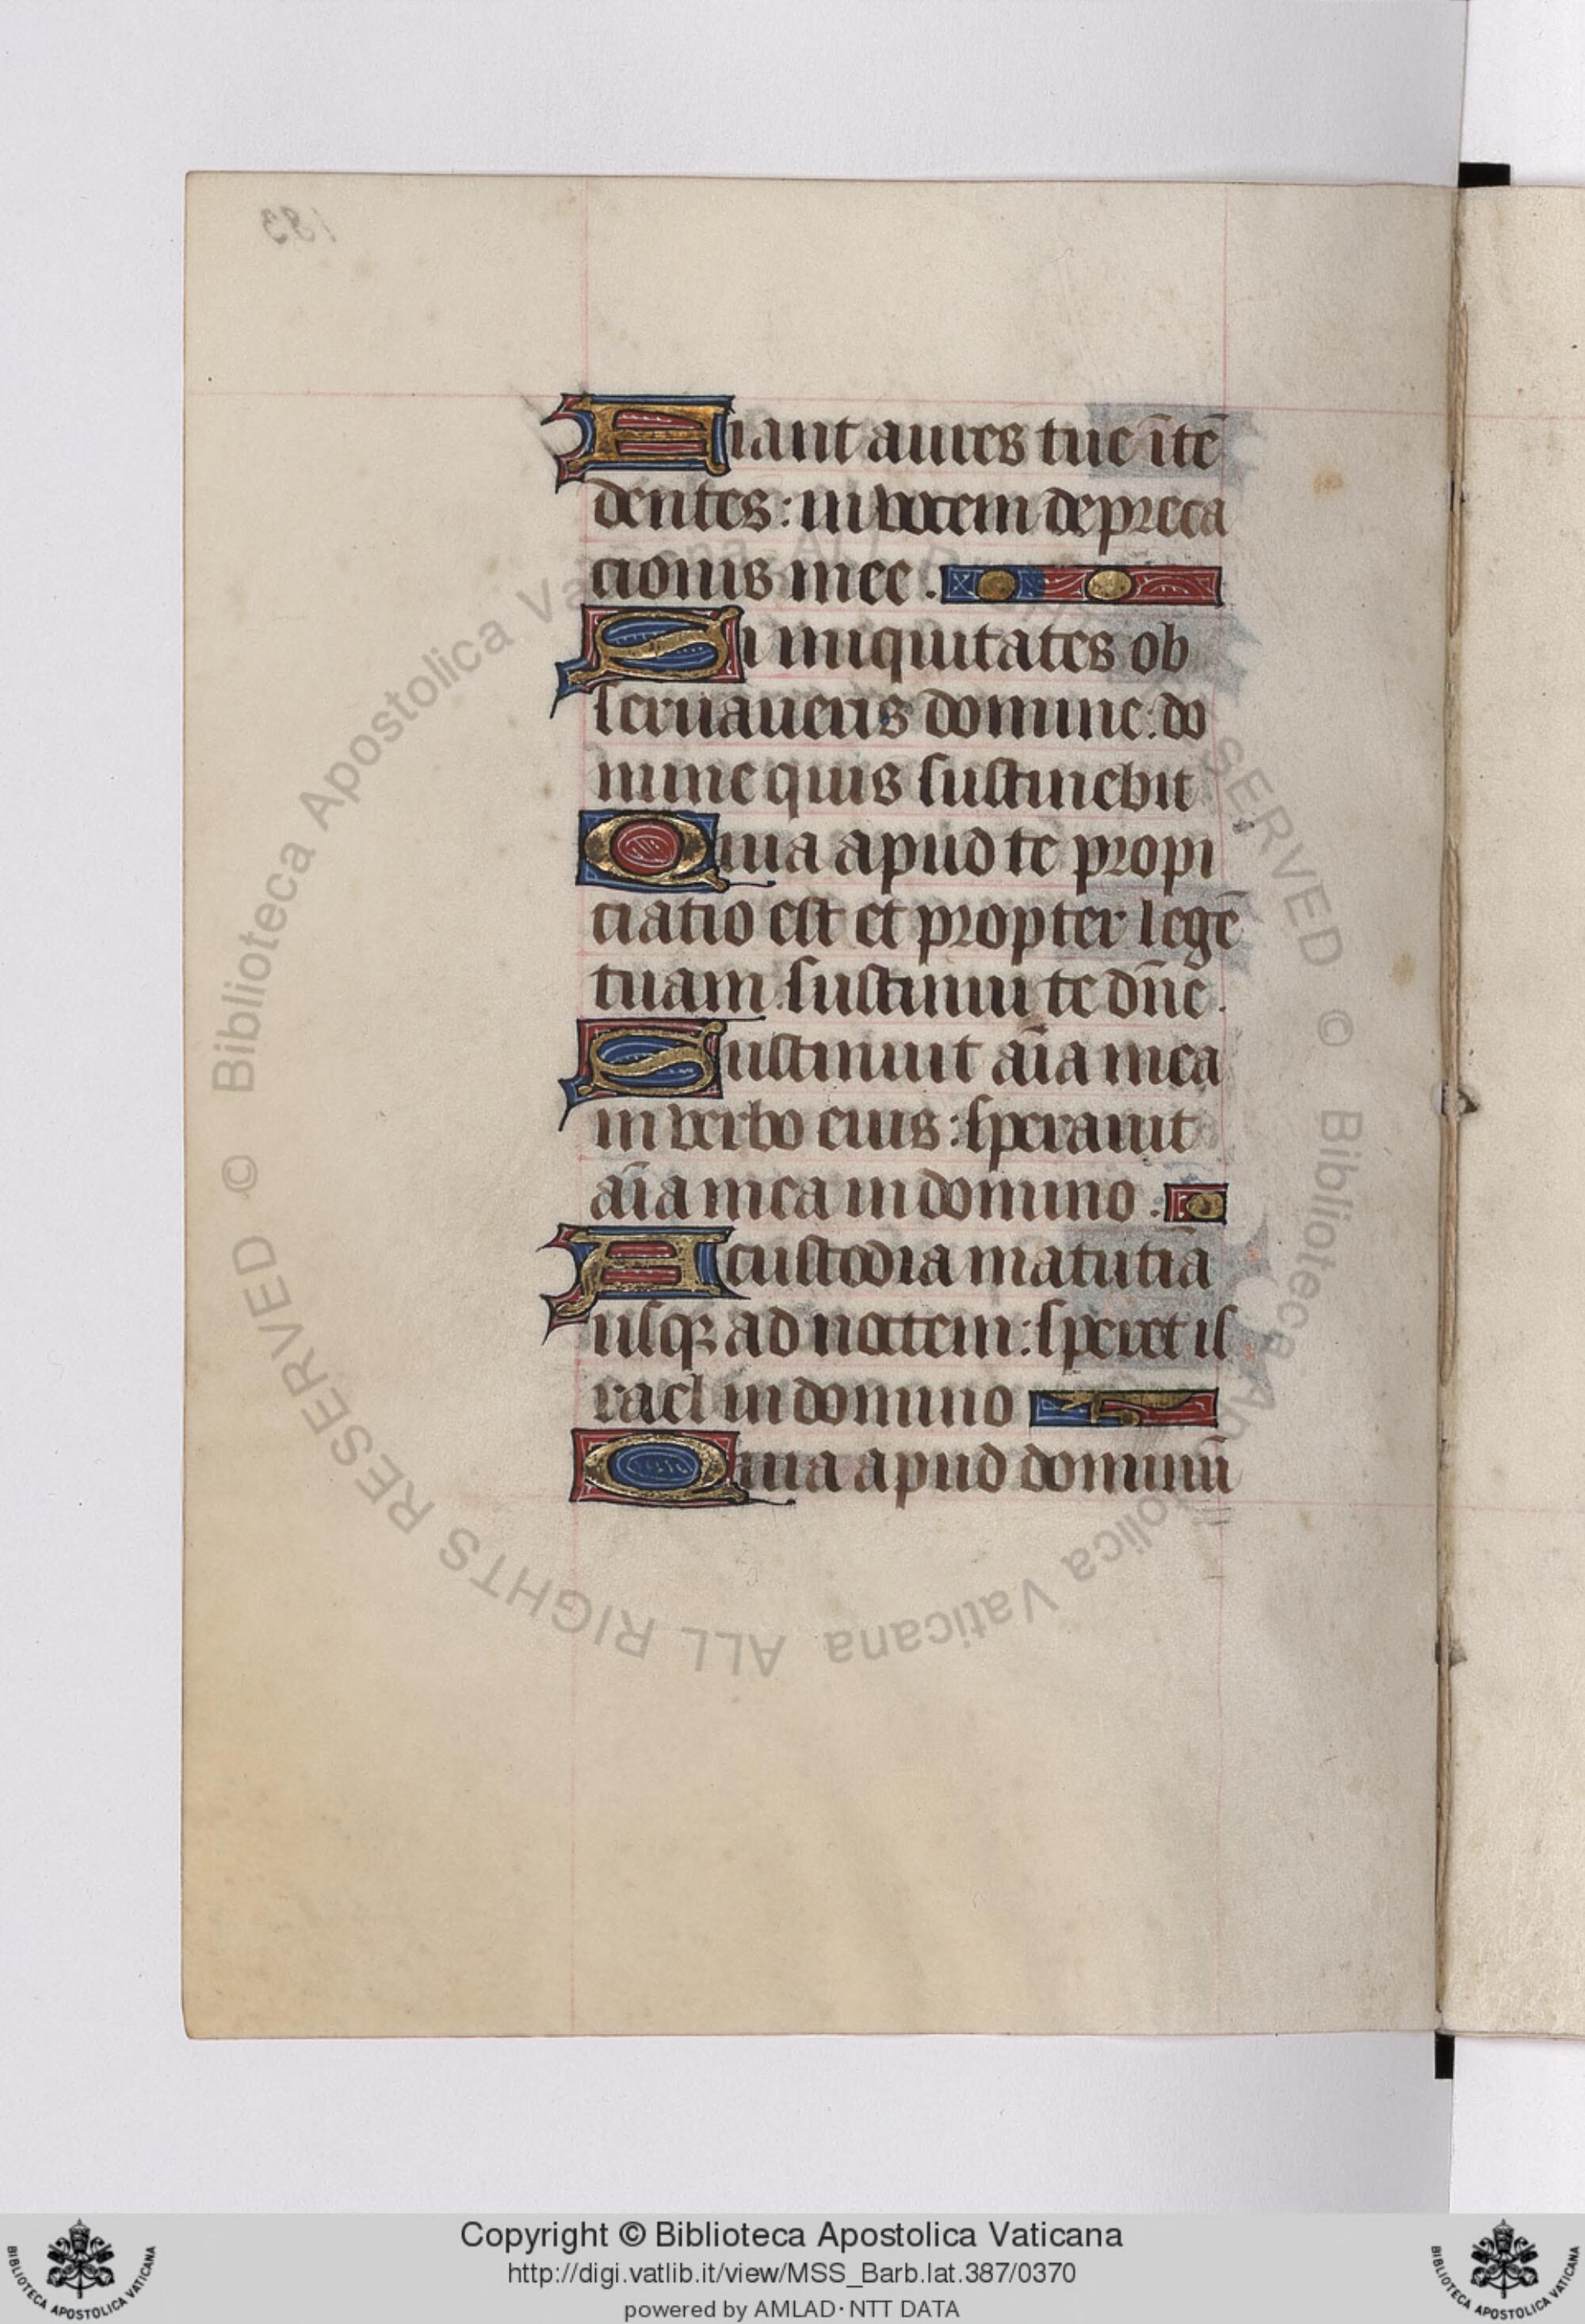 Fiant aures tue ītē
dentes: in vocem depreca
cionis mee.
Si iniquitates ob
seruaueris domine: do
mine quis sustinebit
Quia apud te propi
ciatio est et propter legē
tuam sustinui te dn̄e.
Sustinuit aīa mea
in verbo eius: sperauit
aīa mea in domino.
A custodia matutīa
usqꝫ ad noctem: speret is
rael in domino
Quia apud dominū
© Biblioteca Apostolica Vaticana ALL RIGHTS RESERVED
© Biblioteca Apostolica Vaticana ALL RIGHTS RESERVED
Copyright © Biblioteca Apostolica Vaticana
http://digi.vatlib.it/view/MSS_Barb.lat.387/0370
powered by AMLAD · NTT DATA
BIBLIOTECA APOSTOLICA VATICANA
BIBLIOTECA APOSTOLICA VATICANA